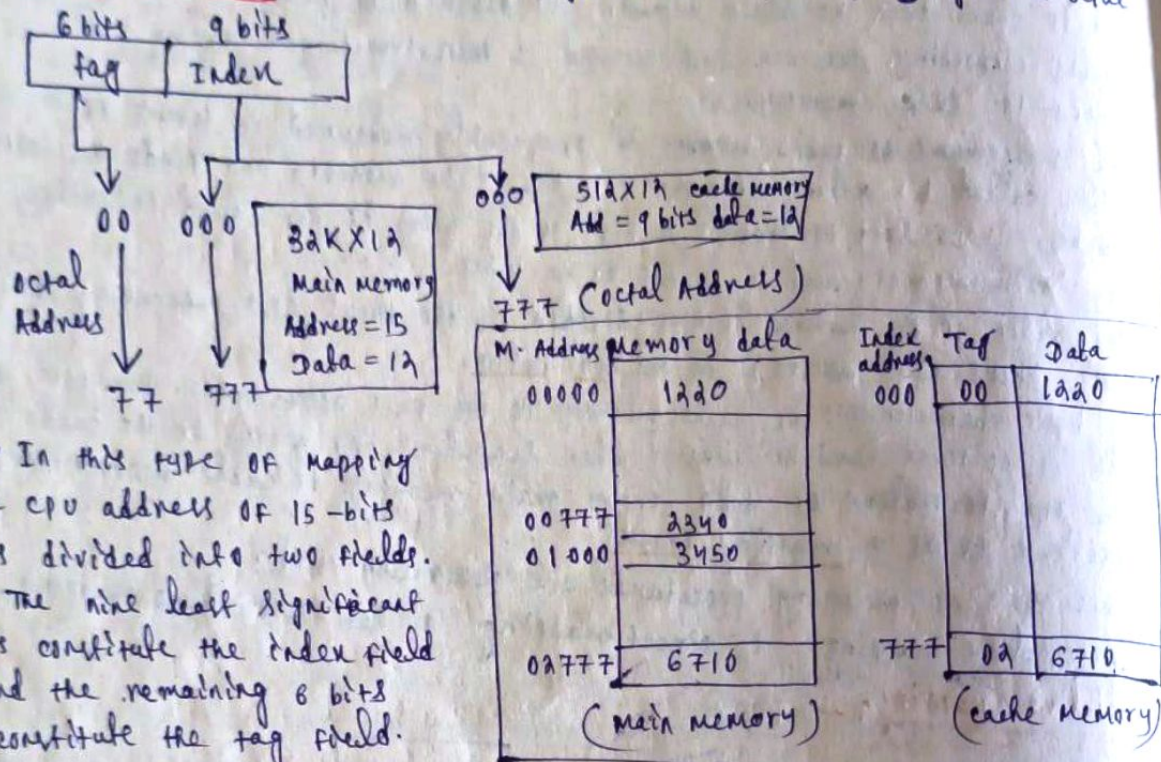 6 bits 9 bits
tag Index
00 000
000
512X12 cache memory
Add = 9 bits data = 12
32KX12
Main Memory
Address = 15
Data = 12
Octal
Address
77 777
777 (Octal Address)
M. Address Memory data
00000 1220
00777 2340
01000 3450
02777 6710
(Main memory)
Index
address
Tag Data
000 00 1220
777 02 6710
(cache Memory)
In this type of mapping
CPU address of 15-bits
divided into two fields.
The nine least significant
constitute the index field
the remaining 6 bits
constitute the tag field.